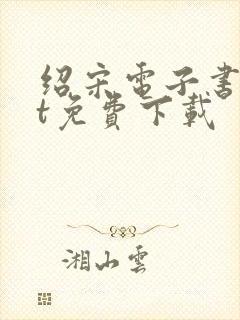 绍宋電子書
t免費下載
湘山雲